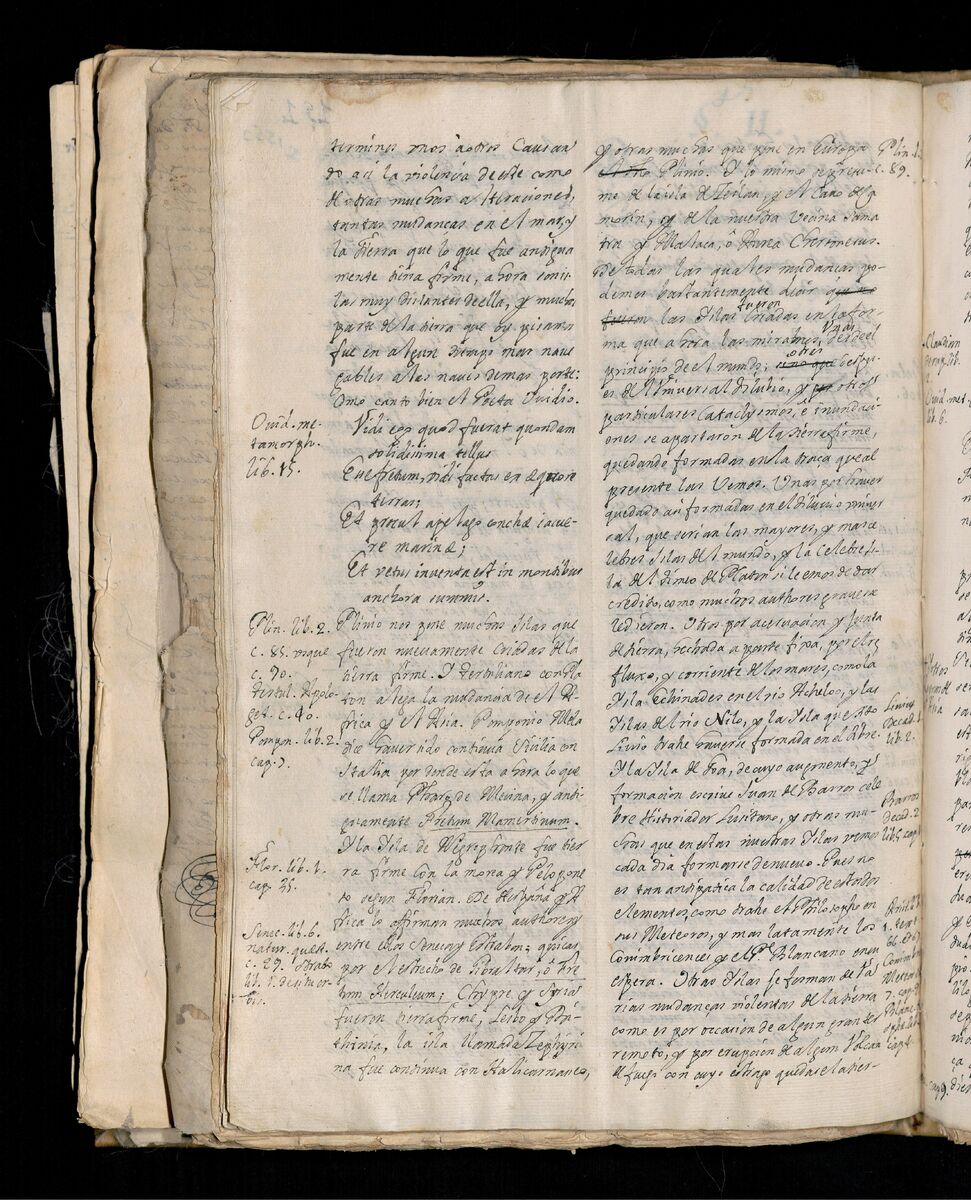 terminos mas à otros Causan
do assi la violencia deeste como
de otras muchas alteraciones,
tantas mudanças en el mar, y
la tierra que lo que fue antigua
mente tierra firme, ahora son is
las muy distantes deella, y mucha
parte de la tierra que oy pisamos
fue en algun tiempo mar nave
gables a las naves de mas porte:
Como canto bien el Poeta Ovidio.
Ovid. me-
tamorph.
lib. 15.
Vidi ego quod fuerat quondam
solidissima tellus
Esse fretum, vidi factas ex æquore
terras;
Et procul a pelago conchæ iacue-
re marinæ;
Et vetus inventa est in montibus
anchora summis.
Plin. lib. 2.
c. 85. usque
c. 90.
Tertul. Apolo-
get. c. 40.
Pompon. lib. 2.
cap. 7.
Plinio nos pone muchas Islas que
fueron nuevamente criadas de la
tierra firme. Y Tertuliano con Pla
ton alega la mudancia de el A-
frica y el Asia. Pomponio Mela
dice haver sido continua Sicilia con
Italia por donde esta ahora lo que
se llama Pharo de Mecina, y anti-
guamente Fretum Mamertinum.
Y la Isla de Negroponte fue tier
ra firme con la morea y Pelopone
so segun Florian. De Hespaña y A-
frica lo affirman muchos authores y
entre ellos Seneca y Estrabon; quiças
por el estrecho de Gibraltar, ò Fre
tum Herculeum; Chypre y Syria
fueron tierra firme, Lesbo y Bon-
thinia, la isla llamada Zephyri
na fue continua con Halicarnaseo,
Flor. lib. 1.
cap. 35.
Senec. lib. 6.
natur. quæst.
c. 29. Strabo
lib. 1. de situ or-
bis.
y otras muchas que pone en Europa
Plinio. Y lo mismo se presu-
me de la isla de Zeilan, y el Cabo de Co
morin, y de la nuestra vecina Sama
tra y Malaca, ò Aurea Chersonesus.
De todas las quales mudanças po-
demos bastantemente decir que no
fueron las Islas fueron criadas en la for-
ma que ahora las miramos, Unas desde el
principio de el mundo; sino que otras despu-
es de el Universal diluvio, y por otros
particulares Cataclysmos, è inundaci-
ones se apartaron de la tierra firme,
quedando formadas en la traça que al
presente las vemos. Unas por haver
quedado assi formadas en el diluvio univer
sal, que serian las mayores, y mas ce
lebres Islas de el mundo, y la celebre Is-
la de el Timeo de Platon si le emos de dar
credito, como muchos authores graves se
le dieron. Otras por acervacion y junta
de tierra, hechada a parte fixa, por el re
fluxo, y corriente de los mares, como la
Isla Echinades en el rio Acheloo, y las
Islas de el rio Nilo, y la Isla que Tito
Livio trahe haverse formada en el Tibre.
Y la Isla de Goa, de cuyo augmento, y
formacion escrive Juan de Barros cele
bre Historiador Lusitano, y otras mu-
chas que en estas nuestras Islas vemos
cada dia formarse de nuevo. Pues no
es tan antipatica la calidad de estos dos
elementos, como trahe el Philosopho en
sus Meteoros, y mas latamente los
Conimbricences y el Pe. Blancano en su
esphera. Otras Islas se forman de va
rias mudanças violentas de la tierra
como es por occasion de algun gran ter
remoto, y por erupcion de algun Volcan
de fuego con cuyo estrago quedase la tier-
Plin. l. 2.
c. 89.
Livius
Decad. 1
lib. 2.
Barros
decad. 2
lib. 5. cap.